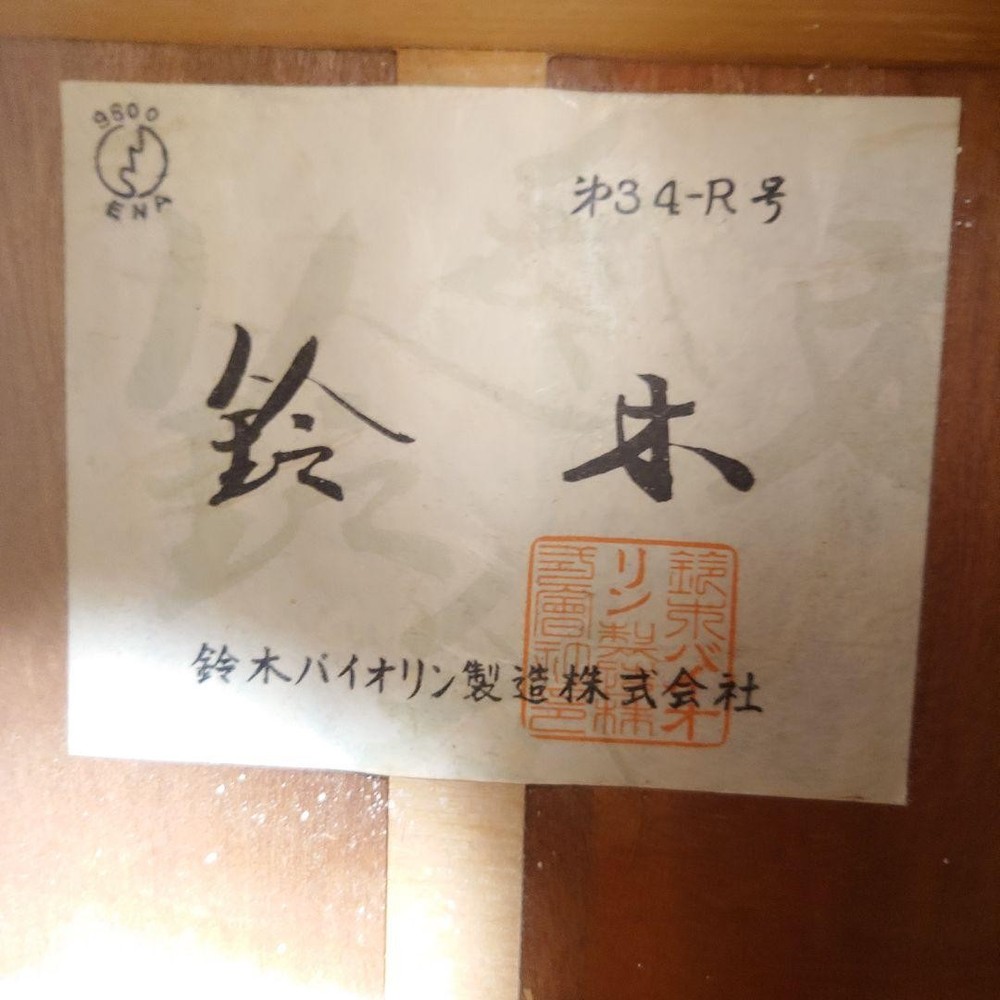 9600
ENA
第34-R号
鈴木
鈴木バイオリン製造株式会社
鈴木バイオ
リン製造株
式會社之印